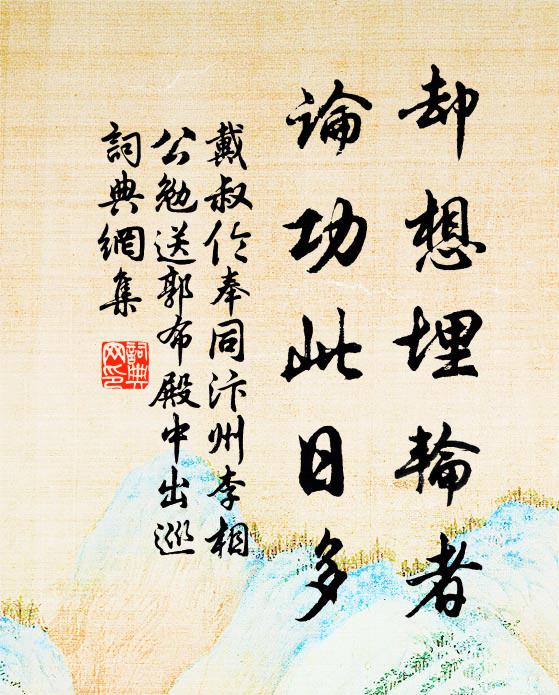 却想埋輪者
論功此日多
戴叔伦奉同汴州李相
公勉送郭布殿中出巡
詞典網集
詞典
网印